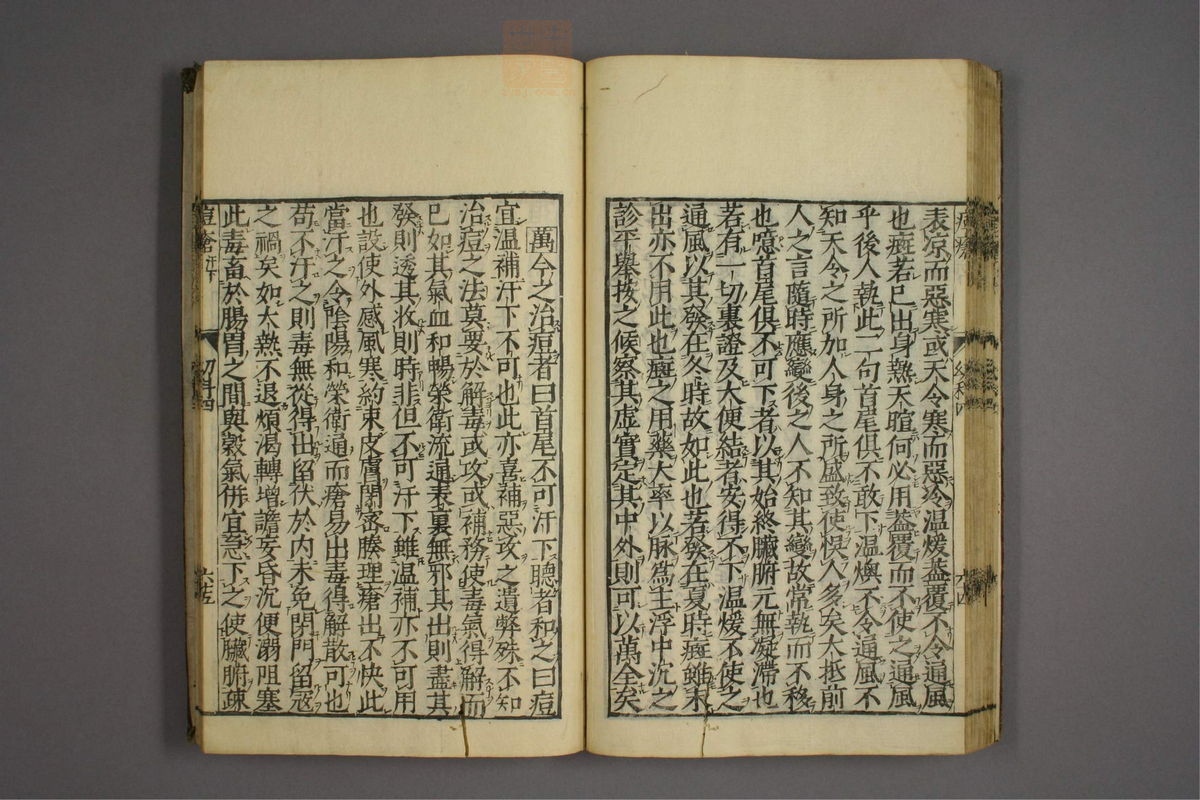 表凉而惡寒或天令寒而惡冷溫煖蓋覆不令通風
也瘢若已出身熱天暄何必用蓋覆而不使之通風
乎後人執此二句首尾俱不敢下溫燠不令通風不
知天令之所加人身之所盛致使悞人多矣大抵前
人之言隨時應變後之人不知其變故常執而不移
也噫首尾俱不可下者以其始終臟腑元無凝滯也
若有一切裏證及大便結者安得不下溫煖不使之
通風以其發在冬時故如此也若發在夏時瘢雖未
出亦不用此也瘢之用藥大率以脉爲主浮中沉之
診平舉按之候察其虛實定其中外則可以萬全矣
萬今之治痘者曰首尾不可汗下聽者和之曰痘
宜溫補汗下不可也此亦喜補惡攻之遺弊殊不知
治痘之法莫要於解毒或攻或補務使毒氣得解而
已如其氣血和暢榮衛流通表裏無邪其出則盡其
發則透其收則時非但不可汗下雖溫補亦不可用
也設使外感風寒約束皮膚閉密腠理瘡出不快此
當汗之令陰陽和榮衛通而瘡易出毒得解散可也
苟不汗之則毒無從得出留伏於內未免閉門留寇
之禍矣如大熱不退煩渴轉增譫妄昏沉便溺阻塞
此毒畜於腸胃之間與穀氣併宜急下之使臟腑疎
痘瘡
幼科四
六五